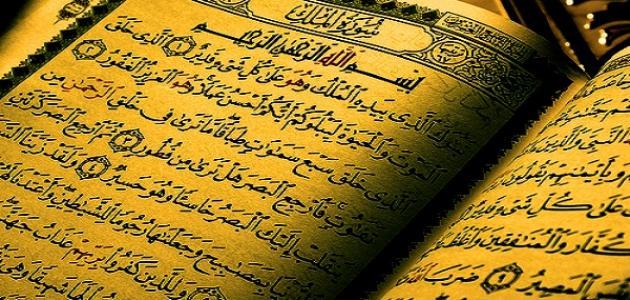 سُورَةُ المُلْكِ
بِسْمِ اللَّهِ الرَّحْمَٰنِ الرَّحِيمِ
تَبَٰرَكَ ٱلَّذِي بِيَدِهِ ٱلْمُلْكُ وَهُوَ عَلَىٰ كُلِّ شَيْءٍ قَدِيرٌ ١ ٱلَّذِي خَلَقَ
ٱلْمَوْتَ وَٱلْحَيَوٰةَ لِيَبْلُوَكُمْ أَيُّكُمْ أَحْسَنُ عَمَلًا وَهُوَ ٱلْعَزِيزُ ٱلْغَفُورُ ٢
ٱلَّذِي خَلَقَ سَبْعَ سَمَٰوَٰتٍ طِبَاقًا مَّا تَرَىٰ فِي خَلْقِ ٱلرَّحْمَٰنِ مِن
تَفَٰوُتٍ فَٱرْجِعِ ٱلْبَصَرَ هَلْ تَرَىٰ مِن فُطُورٍ ٣ ثُمَّ ٱرْجِعِ ٱلْبَصَرَ كَرَّتَيْنِ
يَنقَلِبْ إِلَيْكَ ٱلْبَصَرُ خَاسِئًا وَهُوَ حَسِيرٌ ٤ وَلَقَدْ زَيَّنَّا
بِمَصَٰبِيحَ وَجَعَلْنَٰهَا رُجُومًا لِّلشَّيَٰطِينِ وَأَعْتَدْنَا
وَلِلَّذِينَ كَفَرُوا۟ بِرَبِّهِمْ عَذَابُ
شَهِيقًا وَهِيَ
ٱلنَّبِيَّ وَٱلَّذِينَ
وَبِأَيْمَٰنِهِمْ يَقُولُونَ
عَلَىٰ كُلِّ شَيْءٍ قَدِيرٌ
ٱلْكُفَّارَ وَٱلْمُنَٰفِقِينَ وَٱغْلُظْ
ٱلْمَصِيرُ ٩ ضَرَبَ ٱللَّهُ